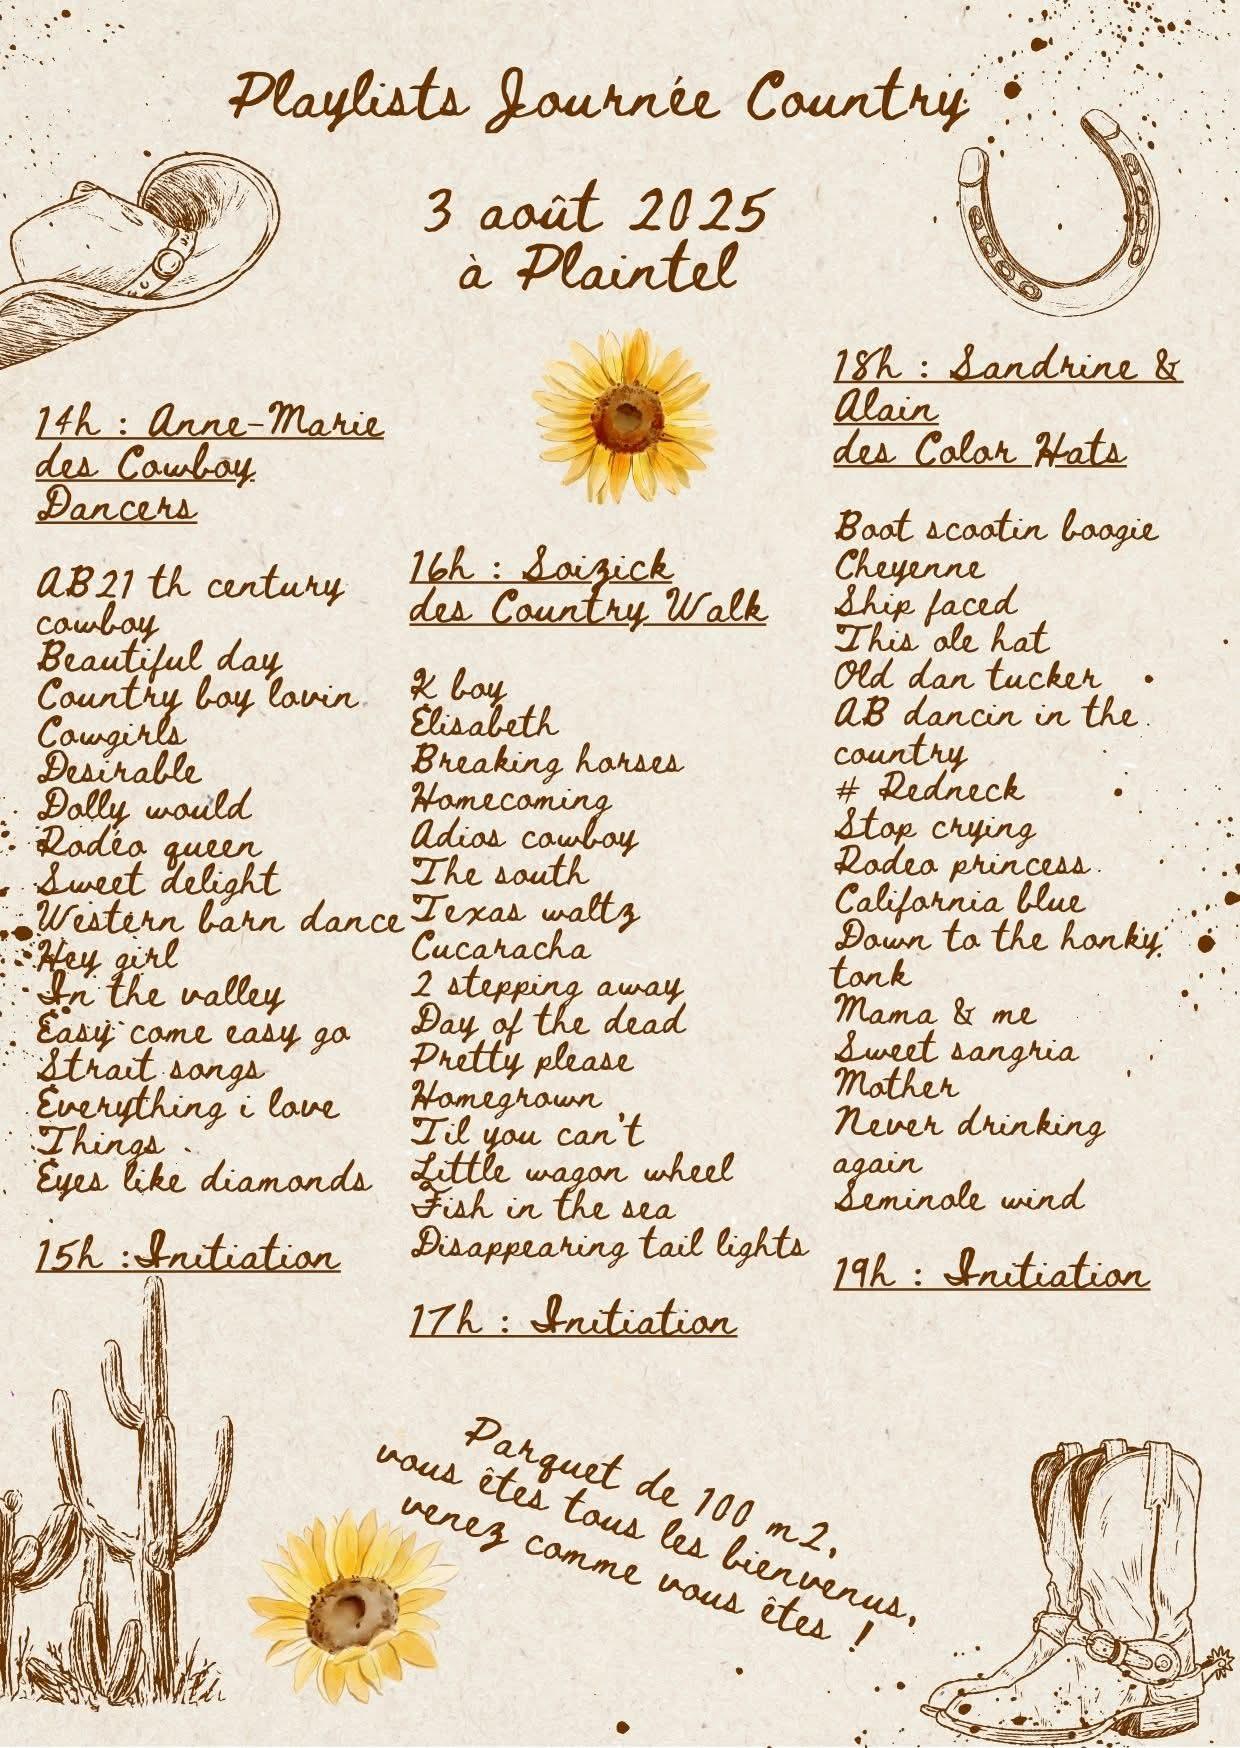 Playlists Journée Country
3 août 2025
à Plaintel
14h : Anne-Marie
des Cowboy
Dancers
AB21 th century
cowboy
Beautiful day
Country boy lovin
Cowgirls
Desirable
Dolly would
Rodéo queen
Sweet delight
Western barn dance
Hey girl
In the valley
Easy come easy go
Strait songs
Everything i love
Things
Eyes like diamonds
15h :Initiation
16h : Soizick
des Country Walk
K boy
Elisabeth
Breaking horses
Homecoming
Adios cowboy
The south
Texas waltz
Cucaracha
2 stepping away
Day of the dead
Pretty please
Homegrown
Til you can't
Little wagon wheel
Fish in the sea
Disappearing tail lights
17h : Initiation
18h : Sandrine &
Alain
des Color Hats
Boot scootin boogie
Cheyenne
Ship faced
This ole hat
Old dan tucker
AB dancin in the
country
# Redneck
Stop crying
Rodeo princess
California blue
Down to the honky
tonk
Mama & me
Sweet sangria
Mother
Never drinking
again
Seminole wind
19h : Initiation
Parquet de 100 m2,
vous êtes tous les bienvenus,
venez comme vous êtes !